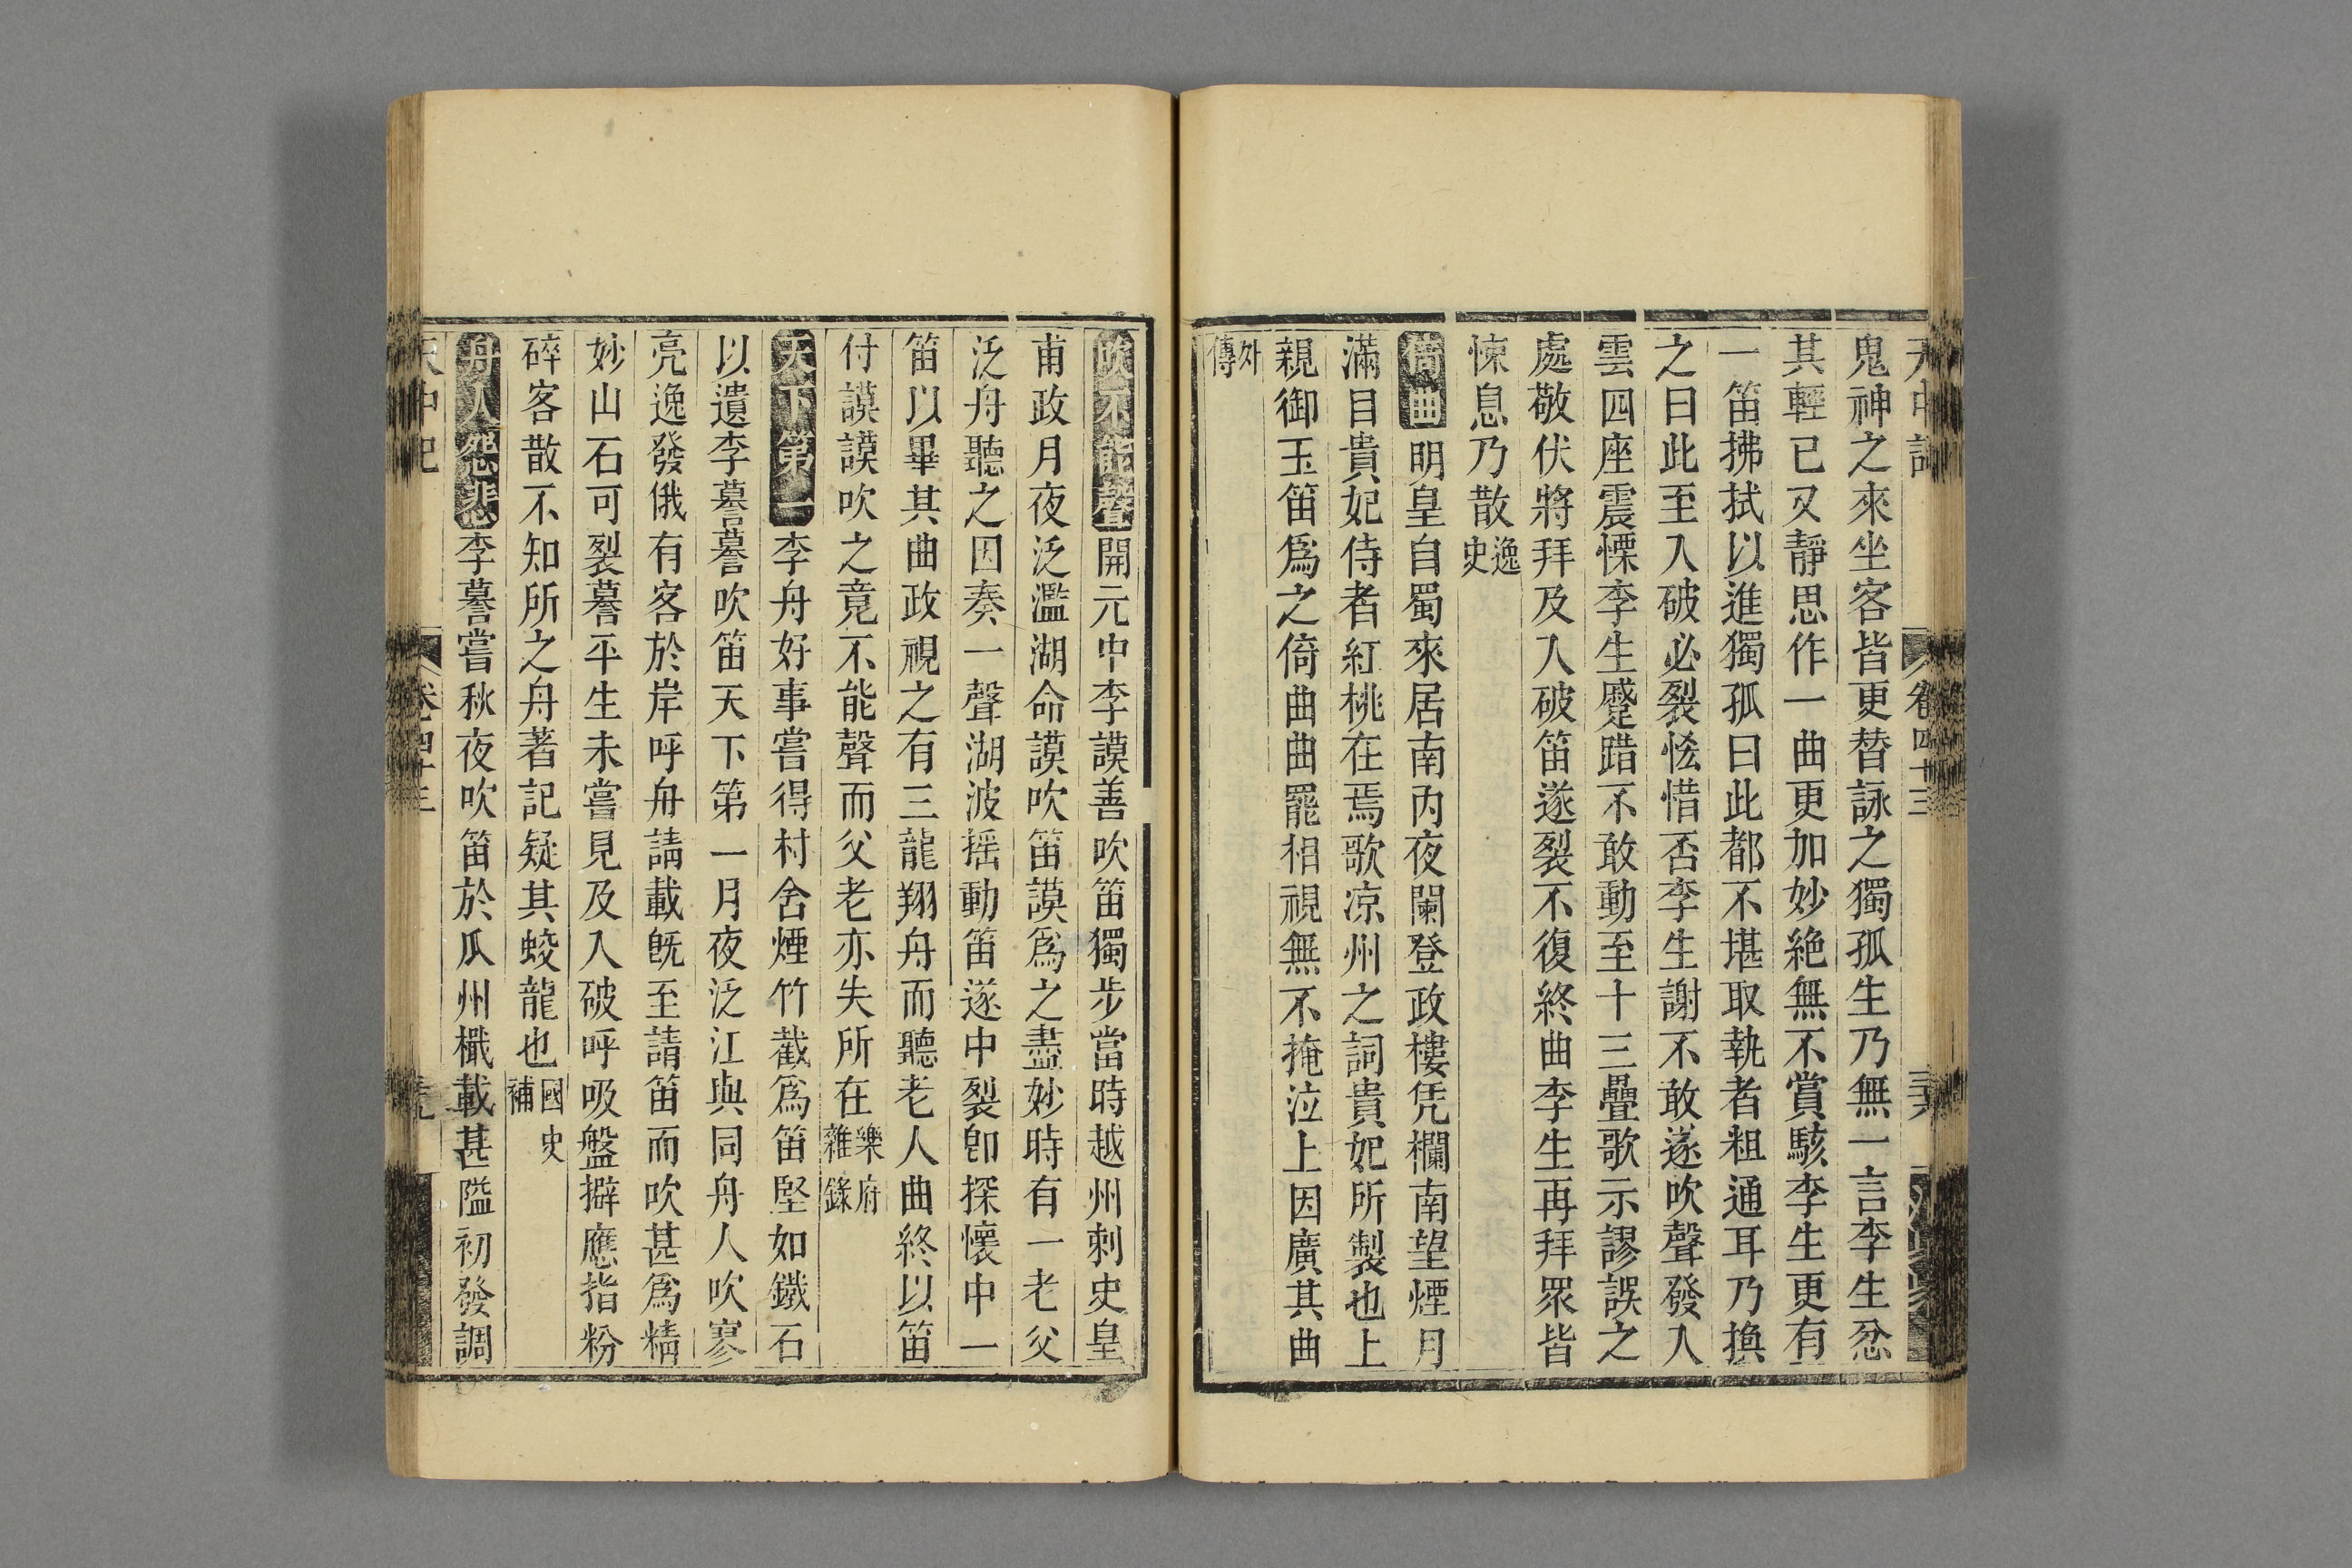 天中記
卷四十三
鬼神之來坐客皆更替詠之獨孤生乃無一言李生忿
其輕已又靜思作一曲更加妙絶無不賞駭李生更有
一笛拂拭以進獨孤曰此都不堪取執者粗通耳乃換
之曰此至入破必裂恡惜否李生謝不敢遂吹聲發入
雲四座震慄李生蹙踖不敢動至十三疊歌示謬誤之
處敬伏將拜及入破笛遂裂不復終曲李生再拜眾皆
悚息乃散逸史
倚曲明皇自蜀來居南內夜闌登政樓凭欄南望煙月
滿目貴妃侍者紅桃在焉歌凉州之詞貴妃所製也上
親御玉笛爲之倚曲曲罷相視無不掩泣上因廣其曲
外傳
吹不能聲開元中李謨善吹笛獨步當時越州刺史皇
甫政月夜泛灆湖命謨吹笛謨爲之盡妙時有一老父
泛舟聽之因奏一聲湖波摇動笛遂中裂卽探懷中一
笛以畢其曲政視之有三龍翔舟而聽老人曲終以笛
付謨謨吹之竟不能聲而父老亦失所在樂府雜錄
天下第一李舟好事嘗得村舍煙竹截爲笛堅如鐵石
以遺李謩謩吹笛天下第一月夜泛江與同舟人吹寥
亮逸發俄有客於岸呼舟請載旣至請笛而吹甚爲精
妙山石可裂謩平生未嘗見及入破呼吸盤擗應指粉
碎客散不知所之舟著記疑其蛟龍也國史補
舟人怨悲李謩嘗秋夜吹笛於瓜州檥載甚隘初發調
天中記
卷四十三